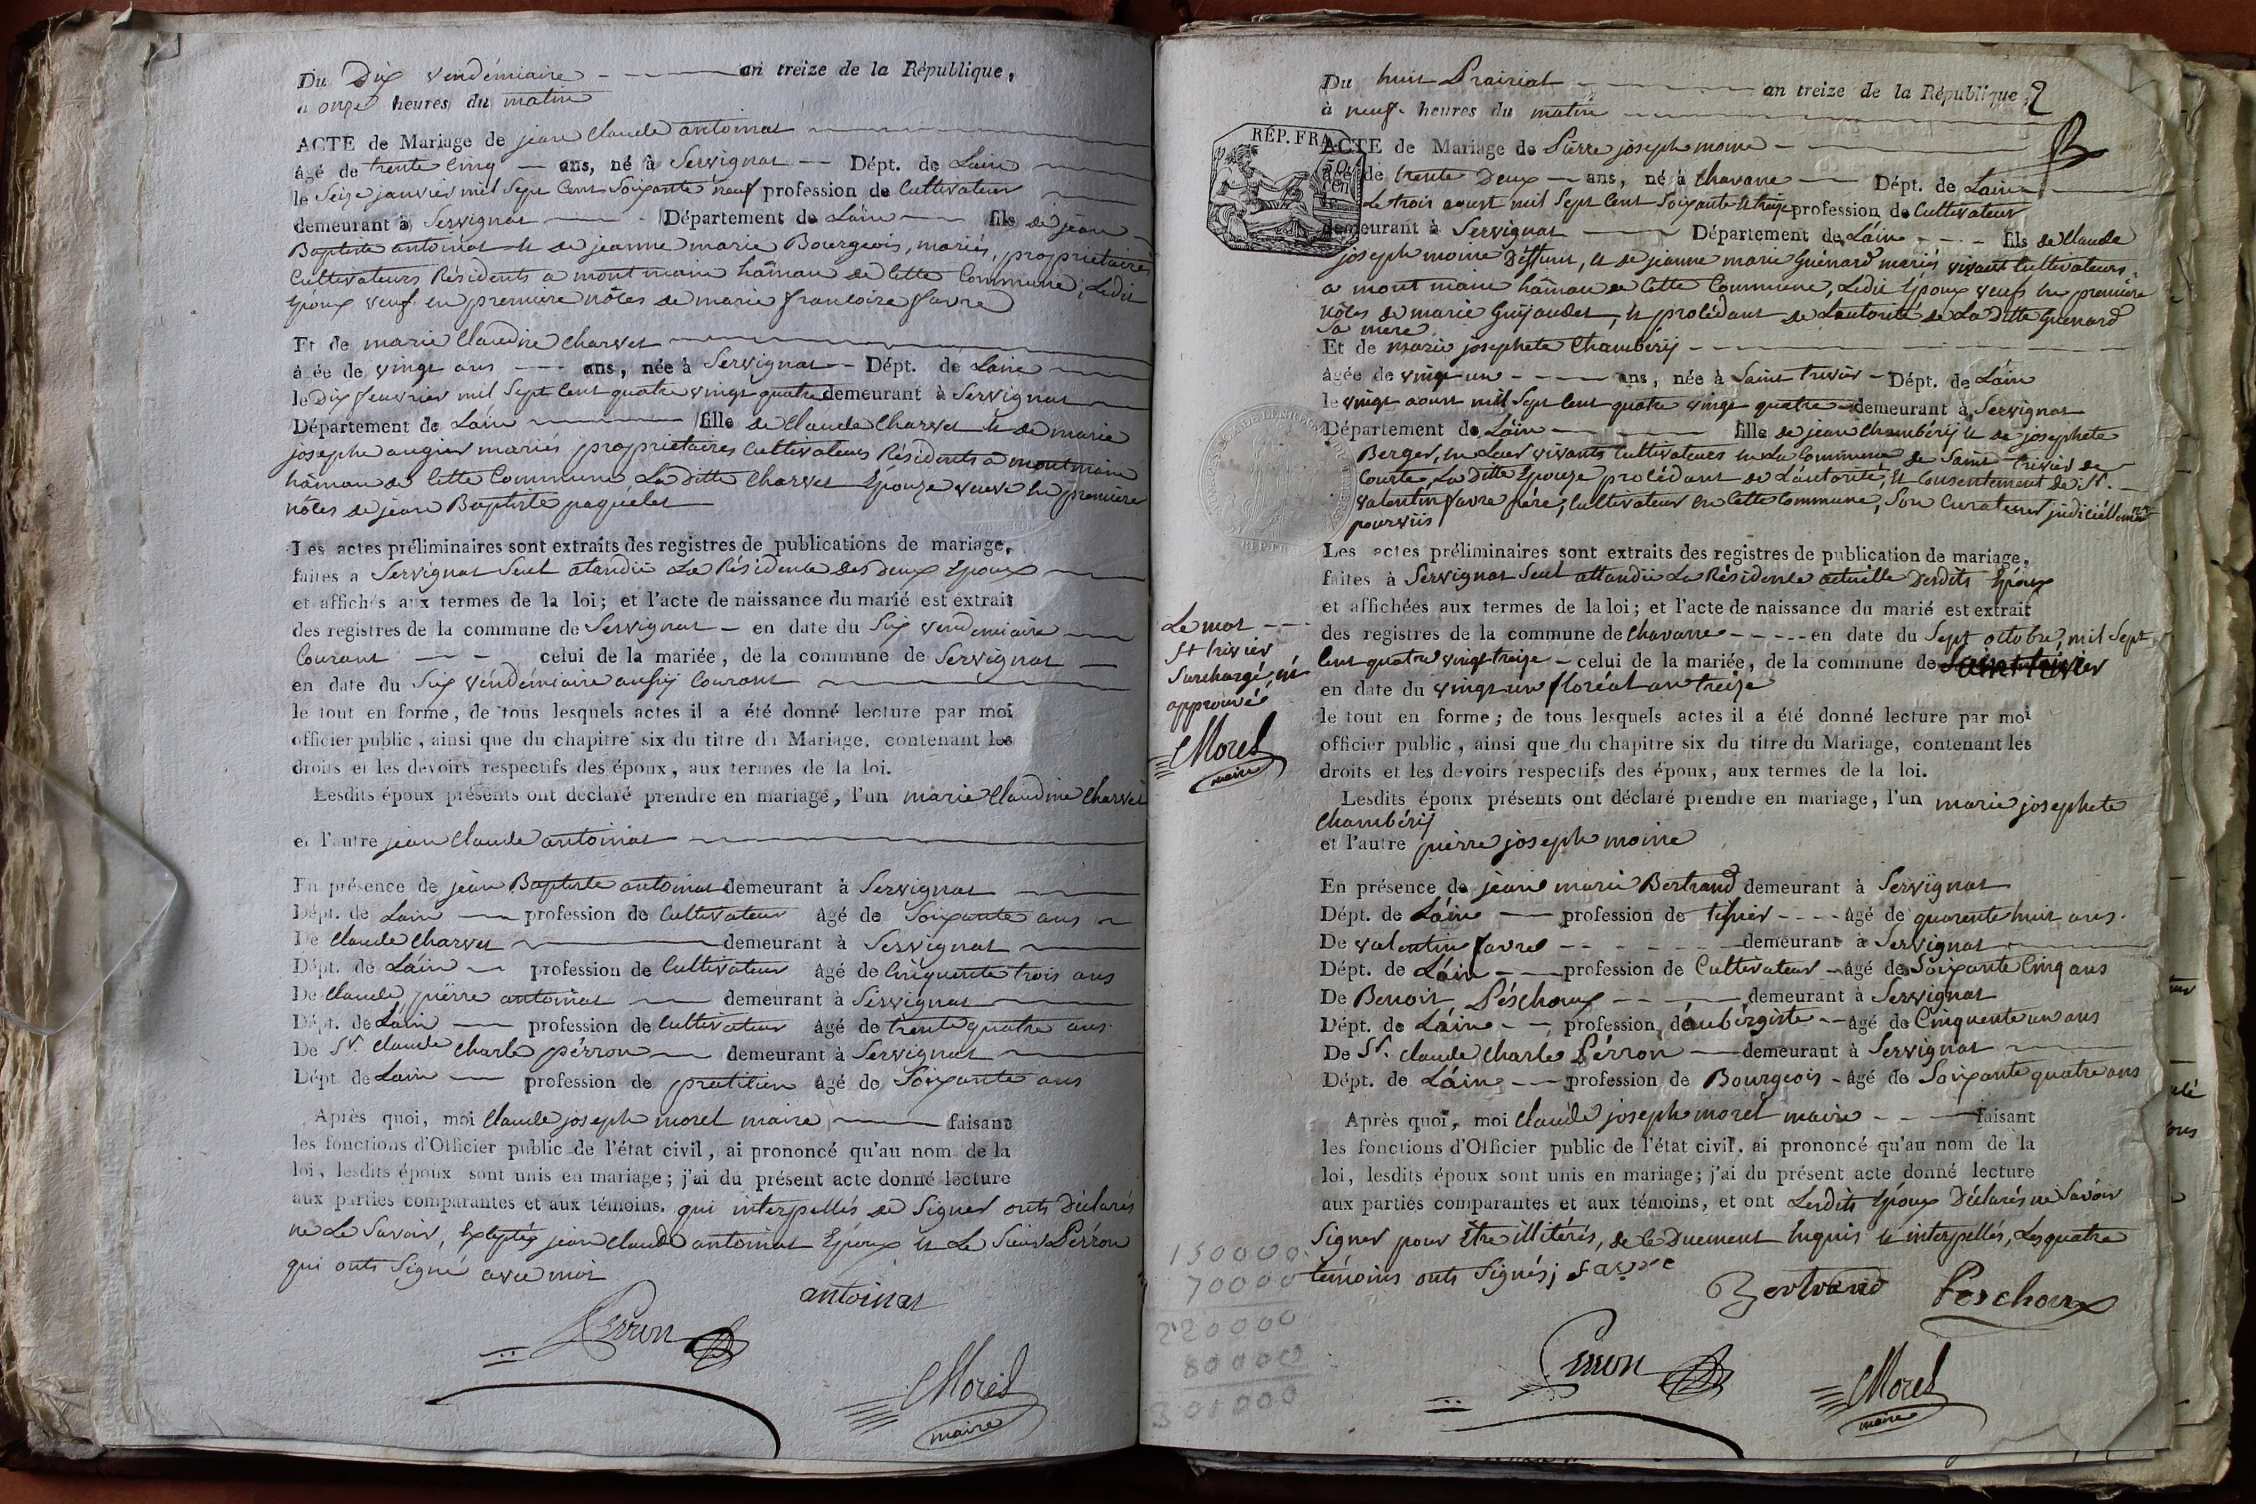 Du Dix vendémiaire an treize de la République,
à onze heures du matin
ACTE de Mariage de jean Claude antoinat
âgé de trente Cinq ans, né à Servignat Dépt. de Lain
le Seize janvier mil Sept Cent Soixante neuf profession de Cultivateur
demeurant à Servignat Département de Láin fils de jean
Baptiste antoinat et de jeanne marie Bourgeois, mariés, propriétaires
Cultivateurs Résidents a montmain hâmau de Cette Commune, Ledit
Epoux veuf en premiere nôtes de marie francoise favre
Et de marie Claudine Charvet
âgée de vingt ans ans, née à Servignat Dépt. de Lain
le Dix feuvrier mil Sept Cent quatre vingt quatre demeurant à Servignat
Département de Lain fille de Claude Charvet et de marie
josephe augier mariés propriétaires Cultivateurs Résidents a montmain
hâmau de Cette Commune La ditte Charvet Epouze veuve en premiere
nôtes de jean Baptiste paquelet
Les actes préliminaires sont extraits des registres de publications de mariage,
faites a Servignat Seul atandü La Résidente des Deux Epoux
et affichés aux termes de la loi; et l'acte de naissance du marié est extrait
des registres de la commune de Servignat en date du Six vendemiaire
Courant celui de la mariée, de la commune de Servignat
en date du Six vendémiaire aussy Courant
le tout en forme, de tous lesquels actes il a été donné lecture par moi
officier public, ainsi que du chapitre six du titre du Mariage, contenant les
droits et les devoirs respectifs des époux, aux termes de la loi.
Lesdits époux présents ont déclaré prendre en mariage, l'un marie Claudine Charvet
et l'autre jean Claude antoinat
En présence de jean Baptiste antoinat demeurant à Servignat
Dépt. de Lain profession de Cultivateur âgé de Soixante ans
De Claude Charvet demeurant à Servignat
Dépt. de Láin profession de Cultivateur âgé de Cinquente trois ans
De Claude pierre antoinat demeurant à Servignat
Dépt. de Láin profession de Cultivateur âgé de trente quatre ans
De Sr. Claude Charle pérron demeurant à Servignat
Dépt. de Lain profession de pratitien âgé de Soixante ans
Après quoi, moi Claude joseph morel maire faisant
les fonctions d'Officier public de l'état civil, ai prononcé qu'au nom de la
loi, lesdits époux sont unis en mariage; j'ai du présent acte donné lecture
aux parties comparantes et aux témoins. qui interpellés de Signer onts Déclarés
ne Le Savoir, Exceptés jean Claude antoinat Epoux et Le Sieur Pérron
qui onts Signé avec moi
antoinat
Perron
Morel
maire
Du huit Prairial an treize de la République, 2
à neuf heures du matin
RÉP. FRA.
ACTE de Mariage de Pierre joseph moine
âgé de trente Deux ans, né à Chavane Dépt. de Lain
Le trois aoust mil Sept Cent Soixante et treize profession de Cultivateur
demeurant à Servignat Département de Láin fils de Claude
joseph moine Déffunt, et de jeanne marie Guénard mariés vivant Cultivateurs
a mont main hâmau de Cette Commune, Ledit Epoux veuf en premiere
nôtes de marie Guÿaudet, et procédant de Lautorité de La Ditte Guenard
Sa mere
Et de marie josephete Chambérÿ
âgée de vingt un ans, née à Saint trivier Dépt. de Láin
le vingt aoust mil Sept Cent quatre vingt quatre demeurant à Servignat
Département de Láin fille de jean Chambérÿ et de josephete
Berger, en Leur vivants Cultivateurs en La Commune de Saint trivier de
Courte, La ditte Epouze procédant de Láutorité, et Consentement de Sr.
valentin favre pére, Cultivateur en Cette Commune, Son Curateur judiciéllement
pourvüs
Les actes préliminaires sont extraits des registres de publication de mariage,
faites à Servignat Seul attandü La Résidente actuélle Desdits Epoux
et affichées aux termes de la loi; et l'acte de naissance du marié est extrait
des registres de la commune de Chavane en date du Sept octobre, mil Sept
Cent quatre vingt treize celui de la mariée, de la commune de Saint trivier
en date du vingt un floréal an treize
le tout en forme; de tous lesquels actes il a été donné lecture par moi
officier public, ainsi que du chapitre six du titre du Mariage, contenant les
droits et les devoirs respectifs des époux, aux termes de la loi.
Le mot
St trivier
Surchargé, ét
approuvé
Morel
maire
Lesdits époux présents ont déclaré prendre en mariage, l'un marie josephete
Chambérÿ
et l'autre pierre joseph moine
En présence de jean marie Bertrand demeurant à Servignat
Dépt. de Láin profession de tissier âgé de quarente huit ans.
De valentin favre demeurant à Servignat
Dépt. de Láin profession de Cultivateur âgé de Soixante Cinq ans
De Benoit Péschoux demeurant à Servignat
Dépt. de Láin profession d'aubérgiste âgé de Cinquente un ans
De Sr. Claude Charle Pérron demeurant à Servignat
Dépt. de Láin profession de Bourgeois âgé de Soixante quatre ans
Après quoi, moi Claude joseph morel maire faisant
les fonctions d'Officier public de l'état civil, ai prononcé qu'au nom de la
loi, lesdits époux sont unis en mariage; j'ai du présent acte donné lecture
aux parties comparantes et aux témoins, et ont Lesdits Epoux Déclarés ne Savoir
Signer pour Être illitérés, de ce Duement Enquis et interpellés, Les quatre
témoins onts Signés; favre
Bertrand Peschoux
Perron
Morel
maire
150000
70000
220000
80000
301000